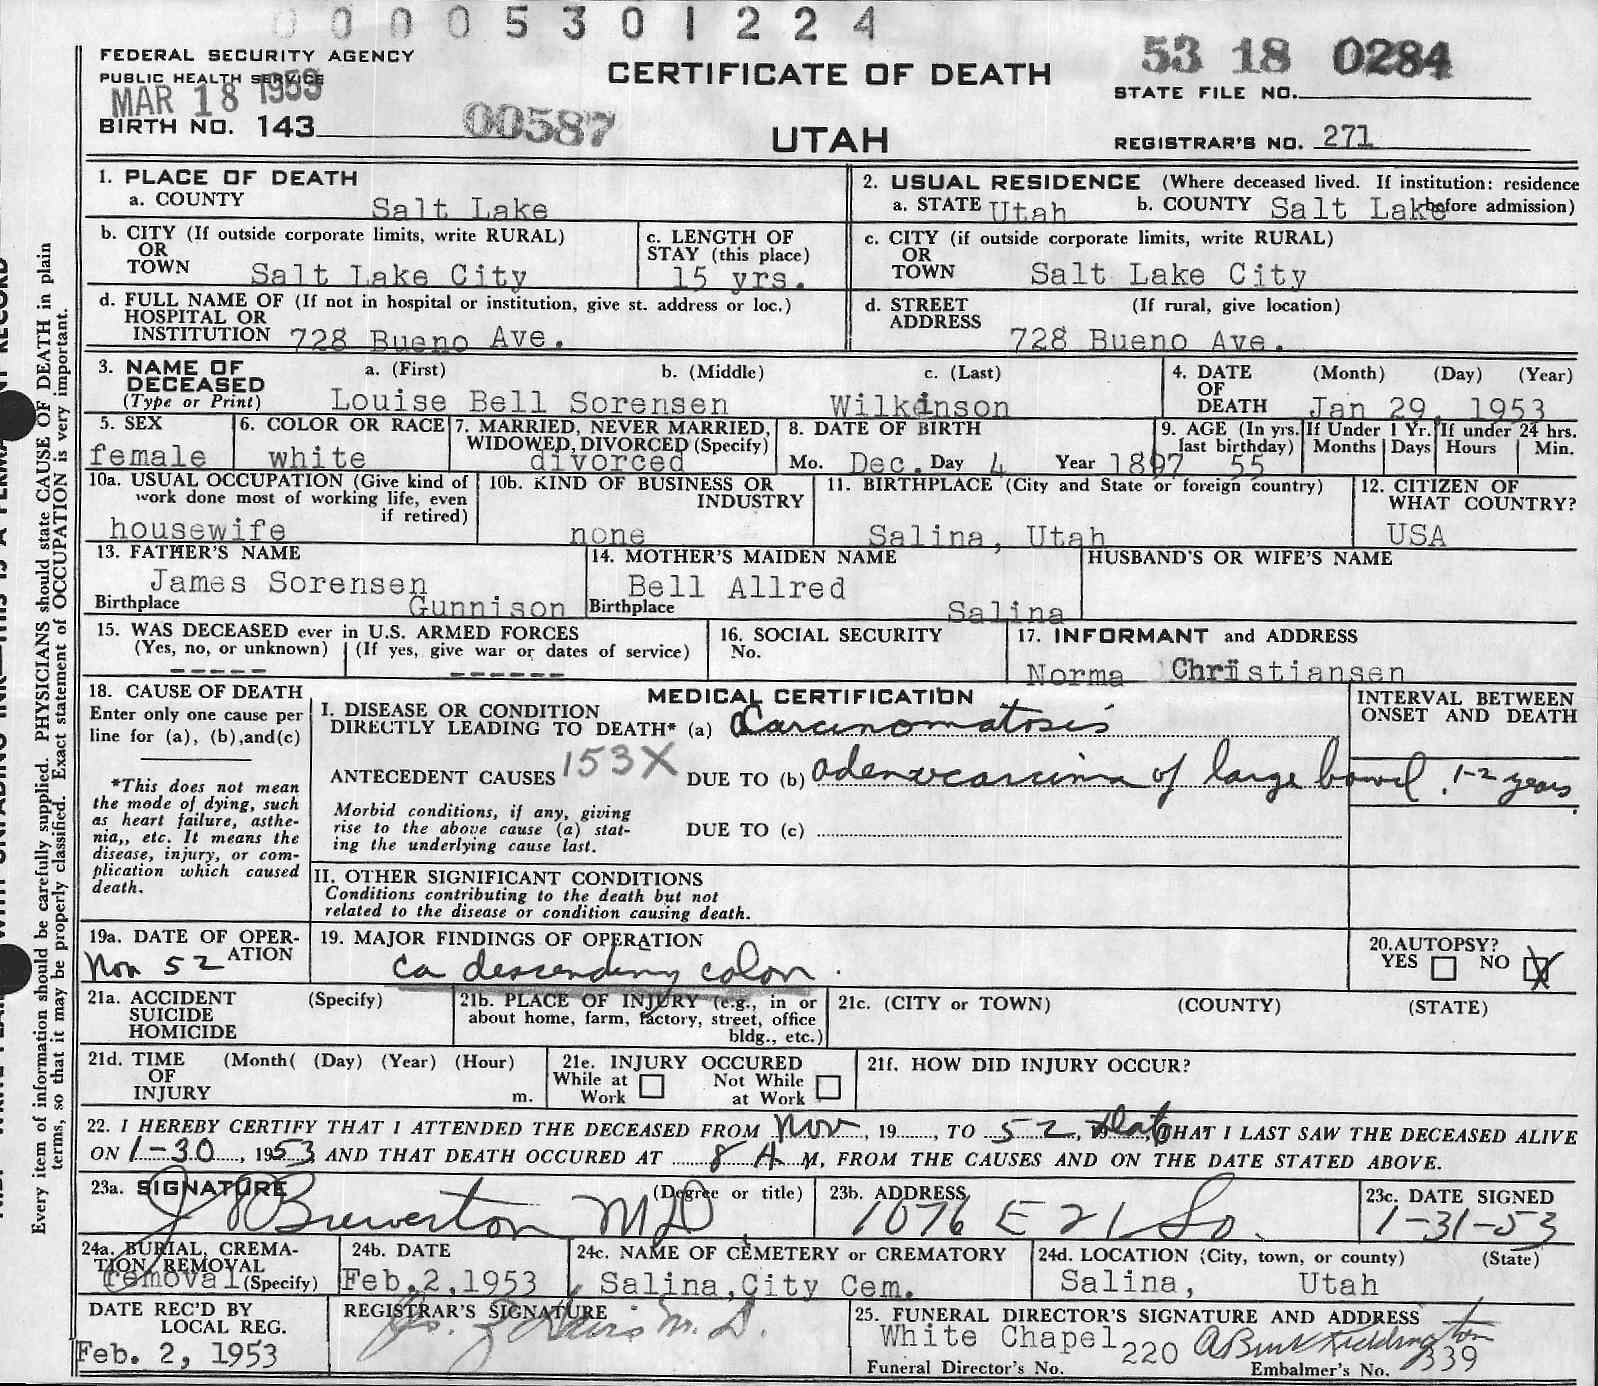 0 0 0 0 5 3 0 1 2 2 4
FEDERAL SECURITY AGENCY
PUBLIC HEALTH SERVICE
MAR 18 1953
BIRTH NO. 143
00587
CERTIFICATE OF DEATH
UTAH
53 18 0284
STATE FILE NO.
REGISTRAR'S NO. 271
Every item of information should be carefully supplied. PHYSICIANS should state CAUSE OF DEATH in plain
terms, so that it may be properly classified. Exact statement of OCCUPATION is very important.
1. PLACE OF DEATH
a. COUNTY Salt Lake
2. USUAL RESIDENCE (Where deceased lived. If institution: residence
before admission)
a. STATE Utah b. COUNTY Salt Lake
b. CITY (If outside corporate limits, write RURAL)
OR
TOWN Salt Lake City
c. LENGTH OF
STAY (this place)
15 yrs.
c. CITY (if outside corporate limits, write RURAL)
OR
TOWN Salt Lake City
d. FULL NAME OF (If not in hospital or institution, give st. address or loc.)
HOSPITAL OR
INSTITUTION 728 Bueno Ave.
d. STREET (If rural, give location)
ADDRESS 728 Bueno Ave.
3. NAME OF a. (First) b. (Middle) c. (Last)
DECEASED
(Type or Print) Louise Bell Sorensen Wilkinson
4. DATE (Month) (Day) (Year)
OF
DEATH Jan 29, 1953
5. SEX
female
6. COLOR OR RACE
white
7. MARRIED, NEVER MARRIED,
WIDOWED, DIVORCED (Specify)
divorced
8. DATE OF BIRTH
Mo. Dec. Day 4 Year 1897
9. AGE (In yrs.
last birthday)
55
If Under 1 Yr.
Months Days
If under 24 hrs.
Hours Min.
10a. USUAL OCCUPATION (Give kind of
work done most of working life, even
if retired)
housewife
10b. KIND OF BUSINESS OR
INDUSTRY
none
11. BIRTHPLACE (City and State or foreign country)
Salina, Utah
12. CITIZEN OF
WHAT COUNTRY?
USA
13. FATHER'S NAME
James Sorensen
Birthplace Gunnison
14. MOTHER'S MAIDEN NAME
Bell Allred
Birthplace Salina
HUSBAND'S OR WIFE'S NAME
15. WAS DECEASED ever in U.S. ARMED FORCES
(Yes, no, or unknown) (If yes, give war or dates of service)
----- ------
16. SOCIAL SECURITY
No.
17. INFORMANT and ADDRESS
Norma Christiansen
18. CAUSE OF DEATH
Enter only one cause per
line for (a), (b), and (c)
*This does not mean
the mode of dying, such
as heart failure, asthe-
nia,, etc. It means the
disease, injury, or com-
plication which caused
death.
MEDICAL CERTIFICATION
I. DISEASE OR CONDITION
DIRECTLY LEADING TO DEATH* (a) Carcinomatosis
ANTECEDENT CAUSES 153X DUE TO (b) adenocarcinma of large bowel
Morbid conditions, if any, giving
rise to the above cause (a) stat-
ing the underlying cause last.
DUE TO (c)
INTERVAL BETWEEN
ONSET AND DEATH
1-2 years
II. OTHER SIGNIFICANT CONDITIONS
Conditions contributing to the death but not
related to the disease or condition causing death.
19a. DATE OF OPER-
ATION
Nov 52
19. MAJOR FINDINGS OF OPERATION
Ca descending colon.
20. AUTOPSY?
YES NO X
21a. ACCIDENT (Specify)
SUICIDE
HOMICIDE
21b. PLACE OF INJURY (e.g., in or
about home, farm, factory, street, office
bldg., etc.)
21c. (CITY or TOWN) (COUNTY) (STATE)
21d. TIME (Month( (Day) (Year) (Hour)
OF
INJURY m.
21e. INJURY OCCURED
While at Work Not While at Work
21f. HOW DID INJURY OCCUR?
22. I HEREBY CERTIFY THAT I ATTENDED THE DECEASED FROM Nov, 19, TO 52, 19 Date, THAT I LAST SAW THE DECEASED ALIVE
ON 1-30, 1953 AND THAT DEATH OCCURED AT 8 A M, FROM THE CAUSES AND ON THE DATE STATED ABOVE.
23a. SIGNATURE (Degree or title)
Brewerton MD
23b. ADDRESS
1076 E 21 So.
23c. DATE SIGNED
1-31-53
24a. BURIAL, CREMA-
TION, REMOVAL
removal (Specify)
24b. DATE
Feb. 2, 1953
24c. NAME OF CEMETERY OR CREMATORY
Salina, City Cem.
24d. LOCATION (City, town, or county) (State)
Salina, Utah
DATE REC'D BY
LOCAL REG.
Feb. 2, 1953
REGISTRAR'S SIGNATURE
M.D.
25. FUNERAL DIRECTOR'S SIGNATURE AND ADDRESS
White Chapel 220
Funeral Director's No. Embalmer's No. 339